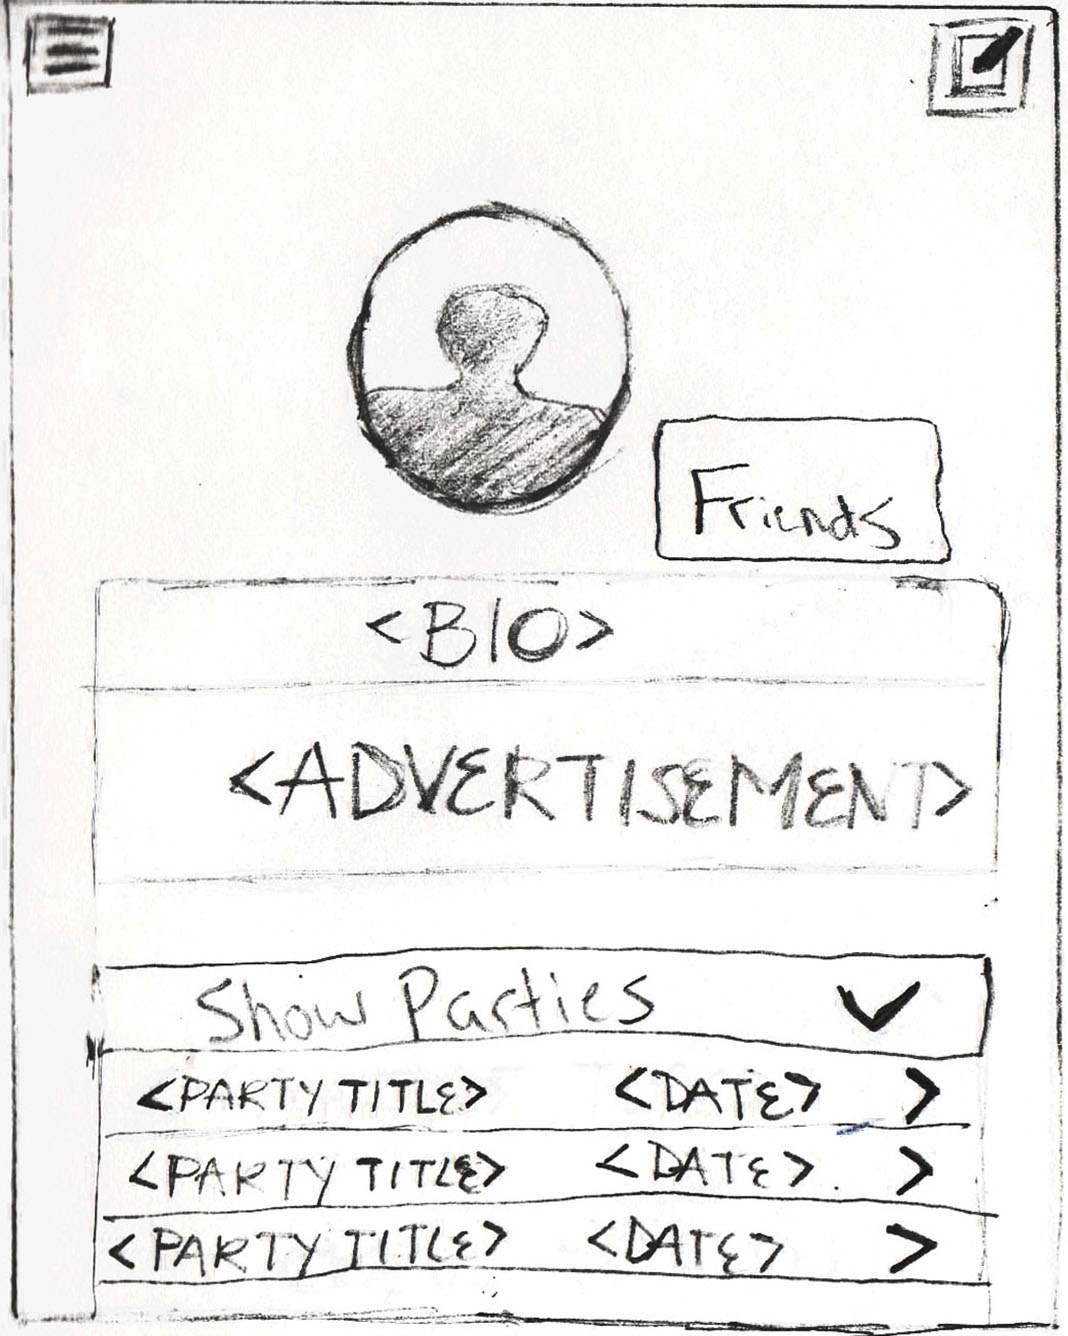 Friends
<BIO>
<ADVERTISEMENT>
Show Parties
<PARTY TITLE> <DATE> >
<PARTY TITLE> <DATE> >
<PARTY TITLE> <DATE> >